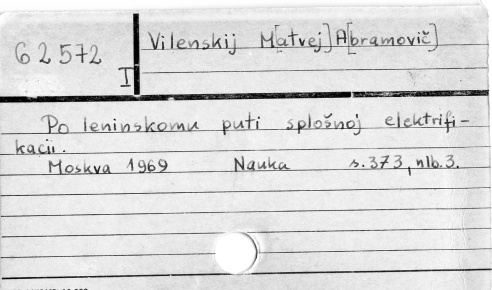 62572
I
Vilenskij M[atvej] A[bramovič]
Po leninskomu puti splošnoj elektrifi-
kacii.
Moskva 1969 Nauka s.373, nlb.3.